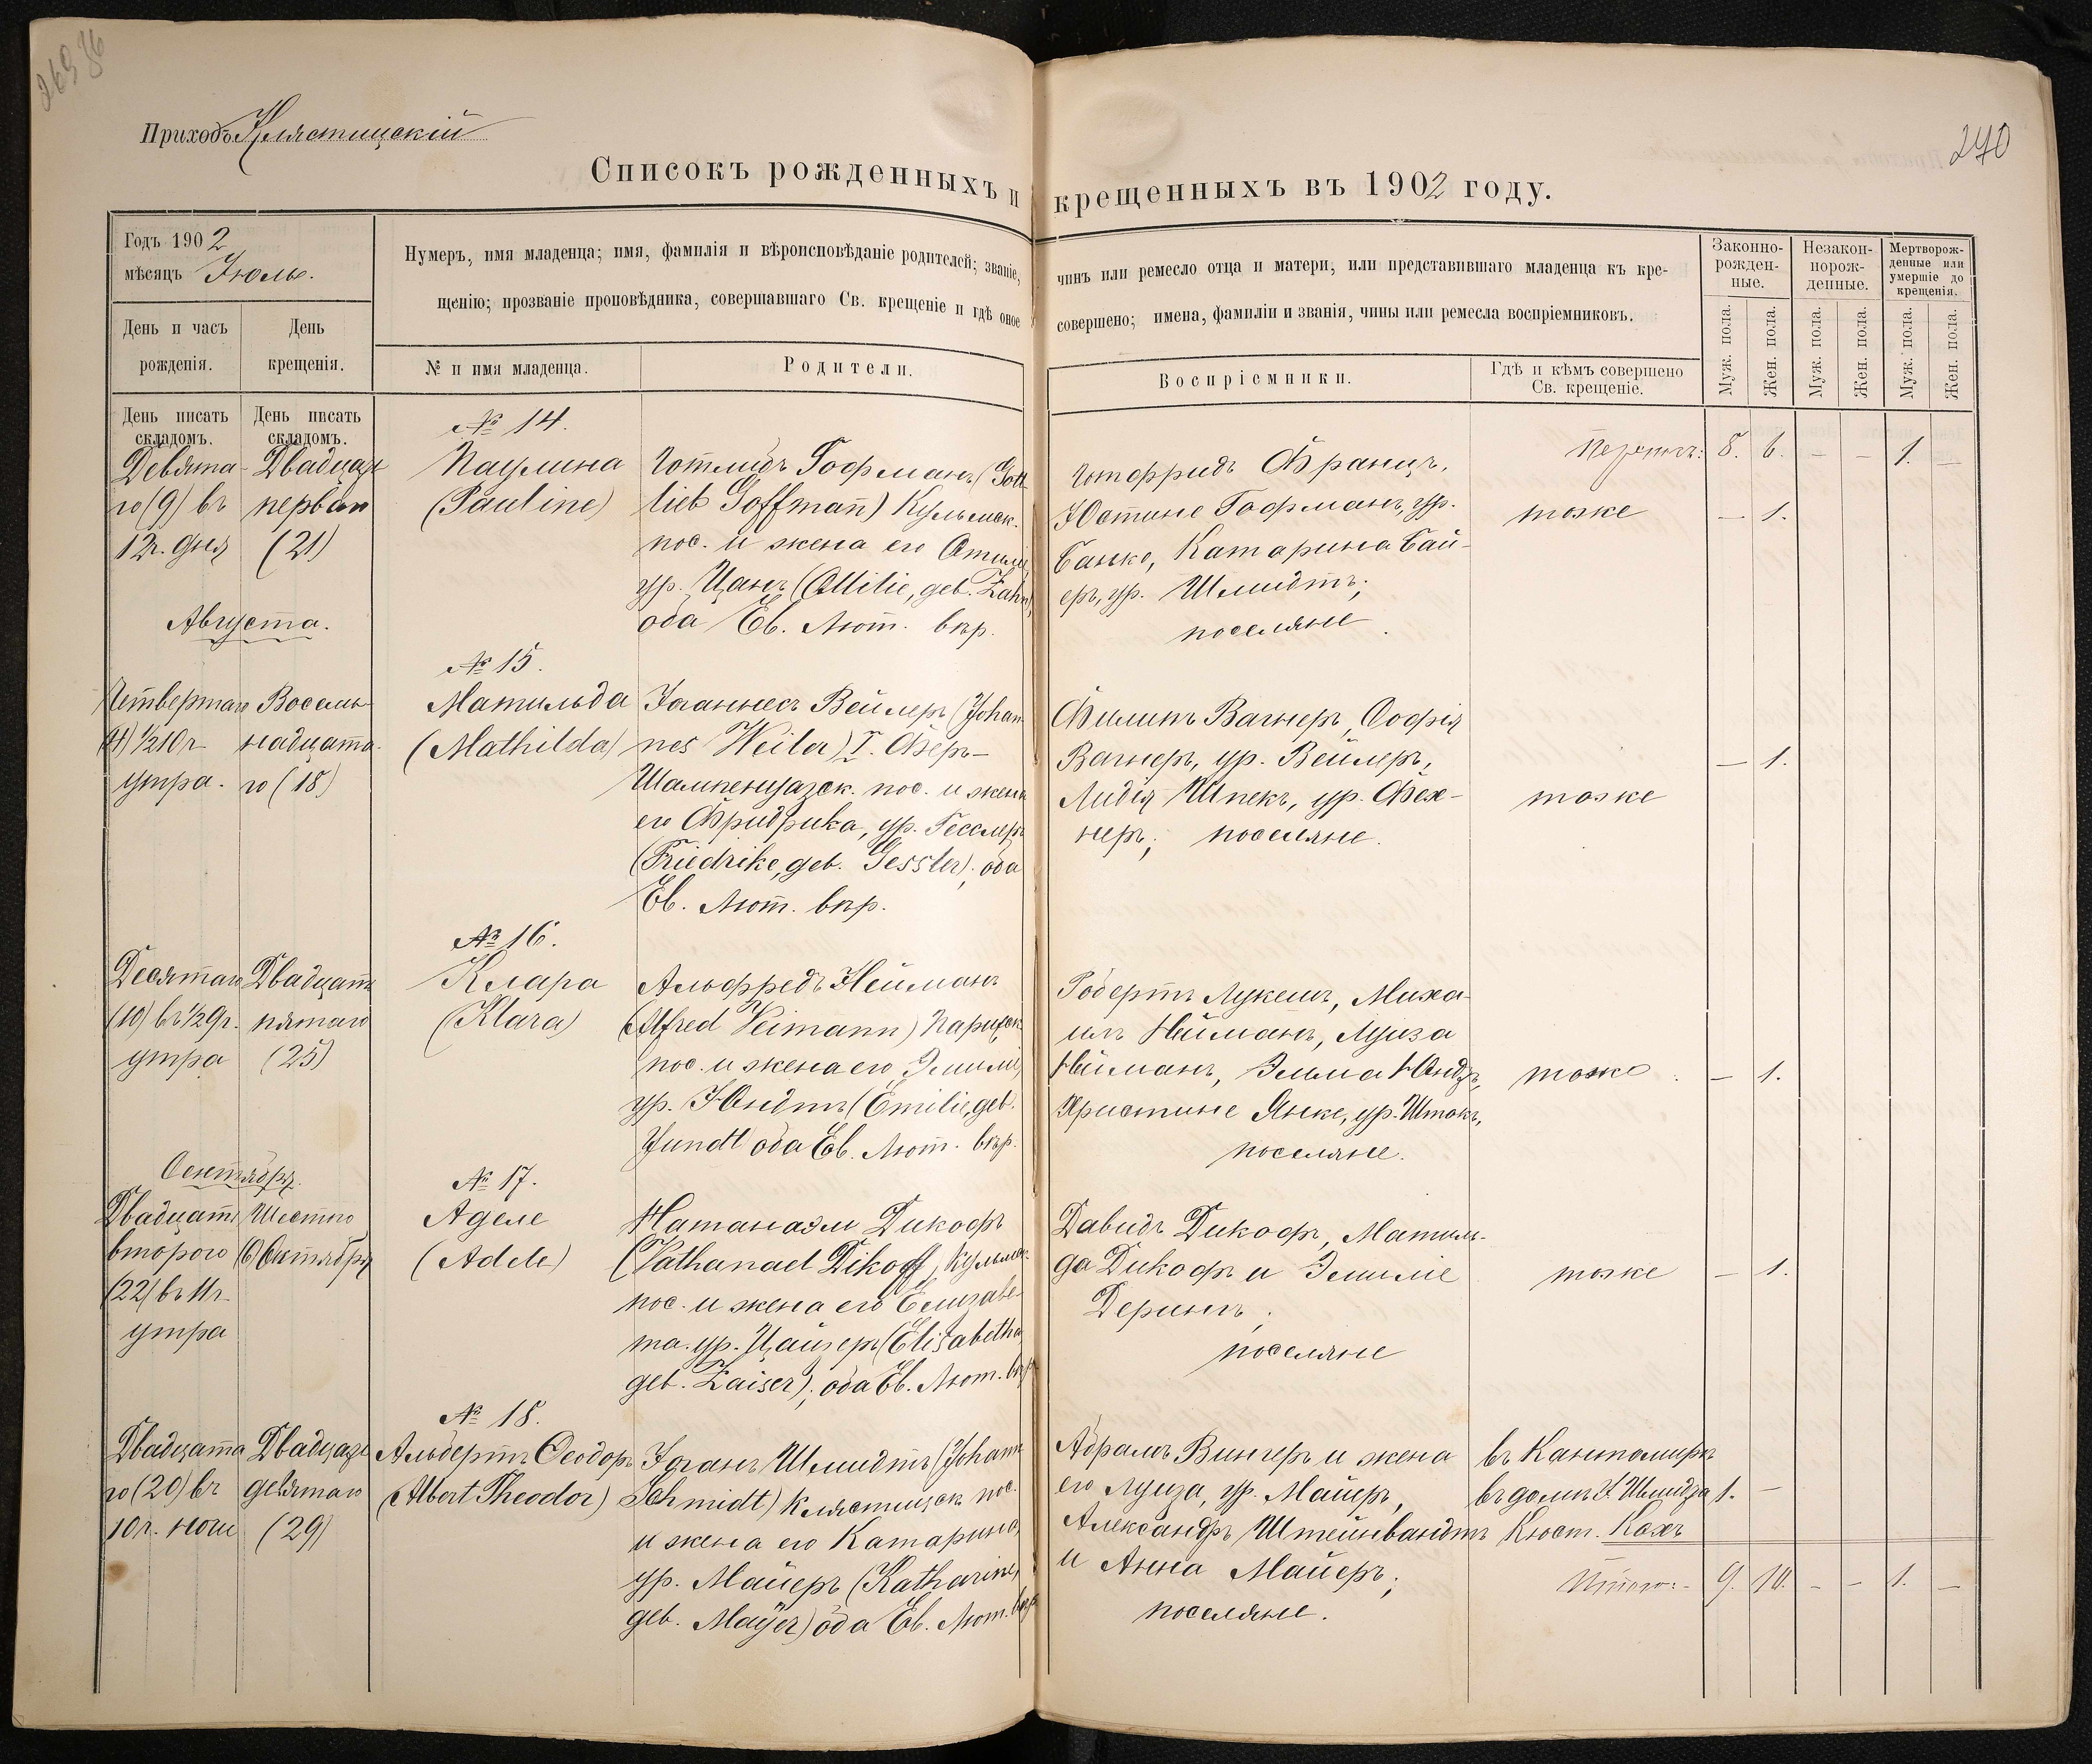 269 об
Приходъ Клястицскій
240
Списокъ рожденныхъ и крещенныхъ въ 1902 году.
Годъ 1902
мѣсяцъ Іюль.
День и часъ рожденія.
День крещенія.
Нумеръ, имя младенца; имя, фамилія и вѣроисповѣданіе родителей; званіе, чинъ или ремесло отца и матери, или представившаго младенца къ кре-
щенію; прозваніе проповѣдника, совершавшаго Св. крещеніе и гдѣ оное совершено; имена, фамиліи и званія, чины или ремесла воспріемниковъ.
№ и имя младенца.
Родители.
Воспріемники.
Гдѣ и кѣмъ совершено
Св. крещеніе.
Законно-
рожден-
ные.
Незакон-
норож-
денные.
Мертворож-
денные или
умершіе до
крещенія.
Муж. пола.
Жен. пола.
Муж. пола.
Жен. пола.
Муж. пола.
Жен. пола.
День писать
складомъ.
День писать
складомъ.
8. 6. – – 1. –
Девята-
го (9) въ
12ч. дня
Двадцат
первая
(21)
№ 14.
Паулина
(Pauline)
Готлибъ Гофманъ (Gott-
lieb Hoffmann) Кульмск.
пос. и жена его Отиліе
ур. Цанъ (Ottilie, geb. Zahn),
оба Ев. Лют. вѣр.
Готфридъ Францъ,
Юстине Гофманъ, ур.
Банко, Катарина Бай-
еръ, ур. Шмидтъ;
поселяне.
тоже
– 1.
Августа.
Четвертаго
(4) ½10ч
утра.
Восемь-
надцата-
го (18)
№ 15.
Матильда
(Mathilda)
Іоаннесъ Вейлеръ (Johan-
nes Weiler) I. Феръ-
Шампенуазск. пос. и жена
его Фридрика, ур. Гесслеръ
(Friedrike, geb. Gessler); оба
Ев. Лют. вѣр.
Филипъ Вагнеръ, Софія
Вагнеръ, ур. Вейлеръ,
Лидія Шпекъ, ур. Фех-
неръ; поселяне.
тоже
– 1.
Десятаго
(10) въ ½9ч.
утра
Двадцать
пятаго
(25)
№ 16.
Клара
(Klara)
Альфредъ Нейманъ
(Alfred Neimann) Парижск.
пос. и жена его Эмиліе,
ур. Юндтъ (Emilie, geb.
Jundt) оба Ев. Лют. вѣр.
Робертъ Лукешъ, Миха-
илъ Нейманъ, Луиза
Нейманъ, Эмма Юндтъ,
Христине Янке, ур. Штокъ,
поселяне.
тоже
– 1.
Сентября.
Двадцать
второго
(22) въ 11ч.
утра
Шестого
(6) Октября
№ 17.
Аделе
(Adele)
Натанаэль Дикофъ
(Nathanael Dikoff) Кульмск.
пос. и жена его Елизабе-
та ур. Цайзеръ (Elisabetha
geb. Zaiser); оба Ев. Лют. вѣр
Давидъ Дикофъ, Матиль-
да Дикофъ и Эмиліе
Дерингъ;
поселяне
тоже
– 1.
Двадцата
го (20) въ
10ч. ночи
Двадцать
девятаго
(29)
№ 18.
Альбертъ Теодоръ
(Albert Theodor)
Іоганъ Шмидтъ (Johann
Schmidt) Клястицск. пос.
и жена его Катарина,
ур. Майеръ (Katharine,
geb. Mayer) оба Ев. Лют. вѣр
Абрамъ Вингеръ и жена
его Луиза, ур. Майеръ,
Александръ Штейнвандтъ
и Анна Майеръ;
поселяне.
въ Кантомиръ
въ домѣ І. Шмидта
Кюст. Кохъ
1. –
Итого:- 9. 10. – – 1. –